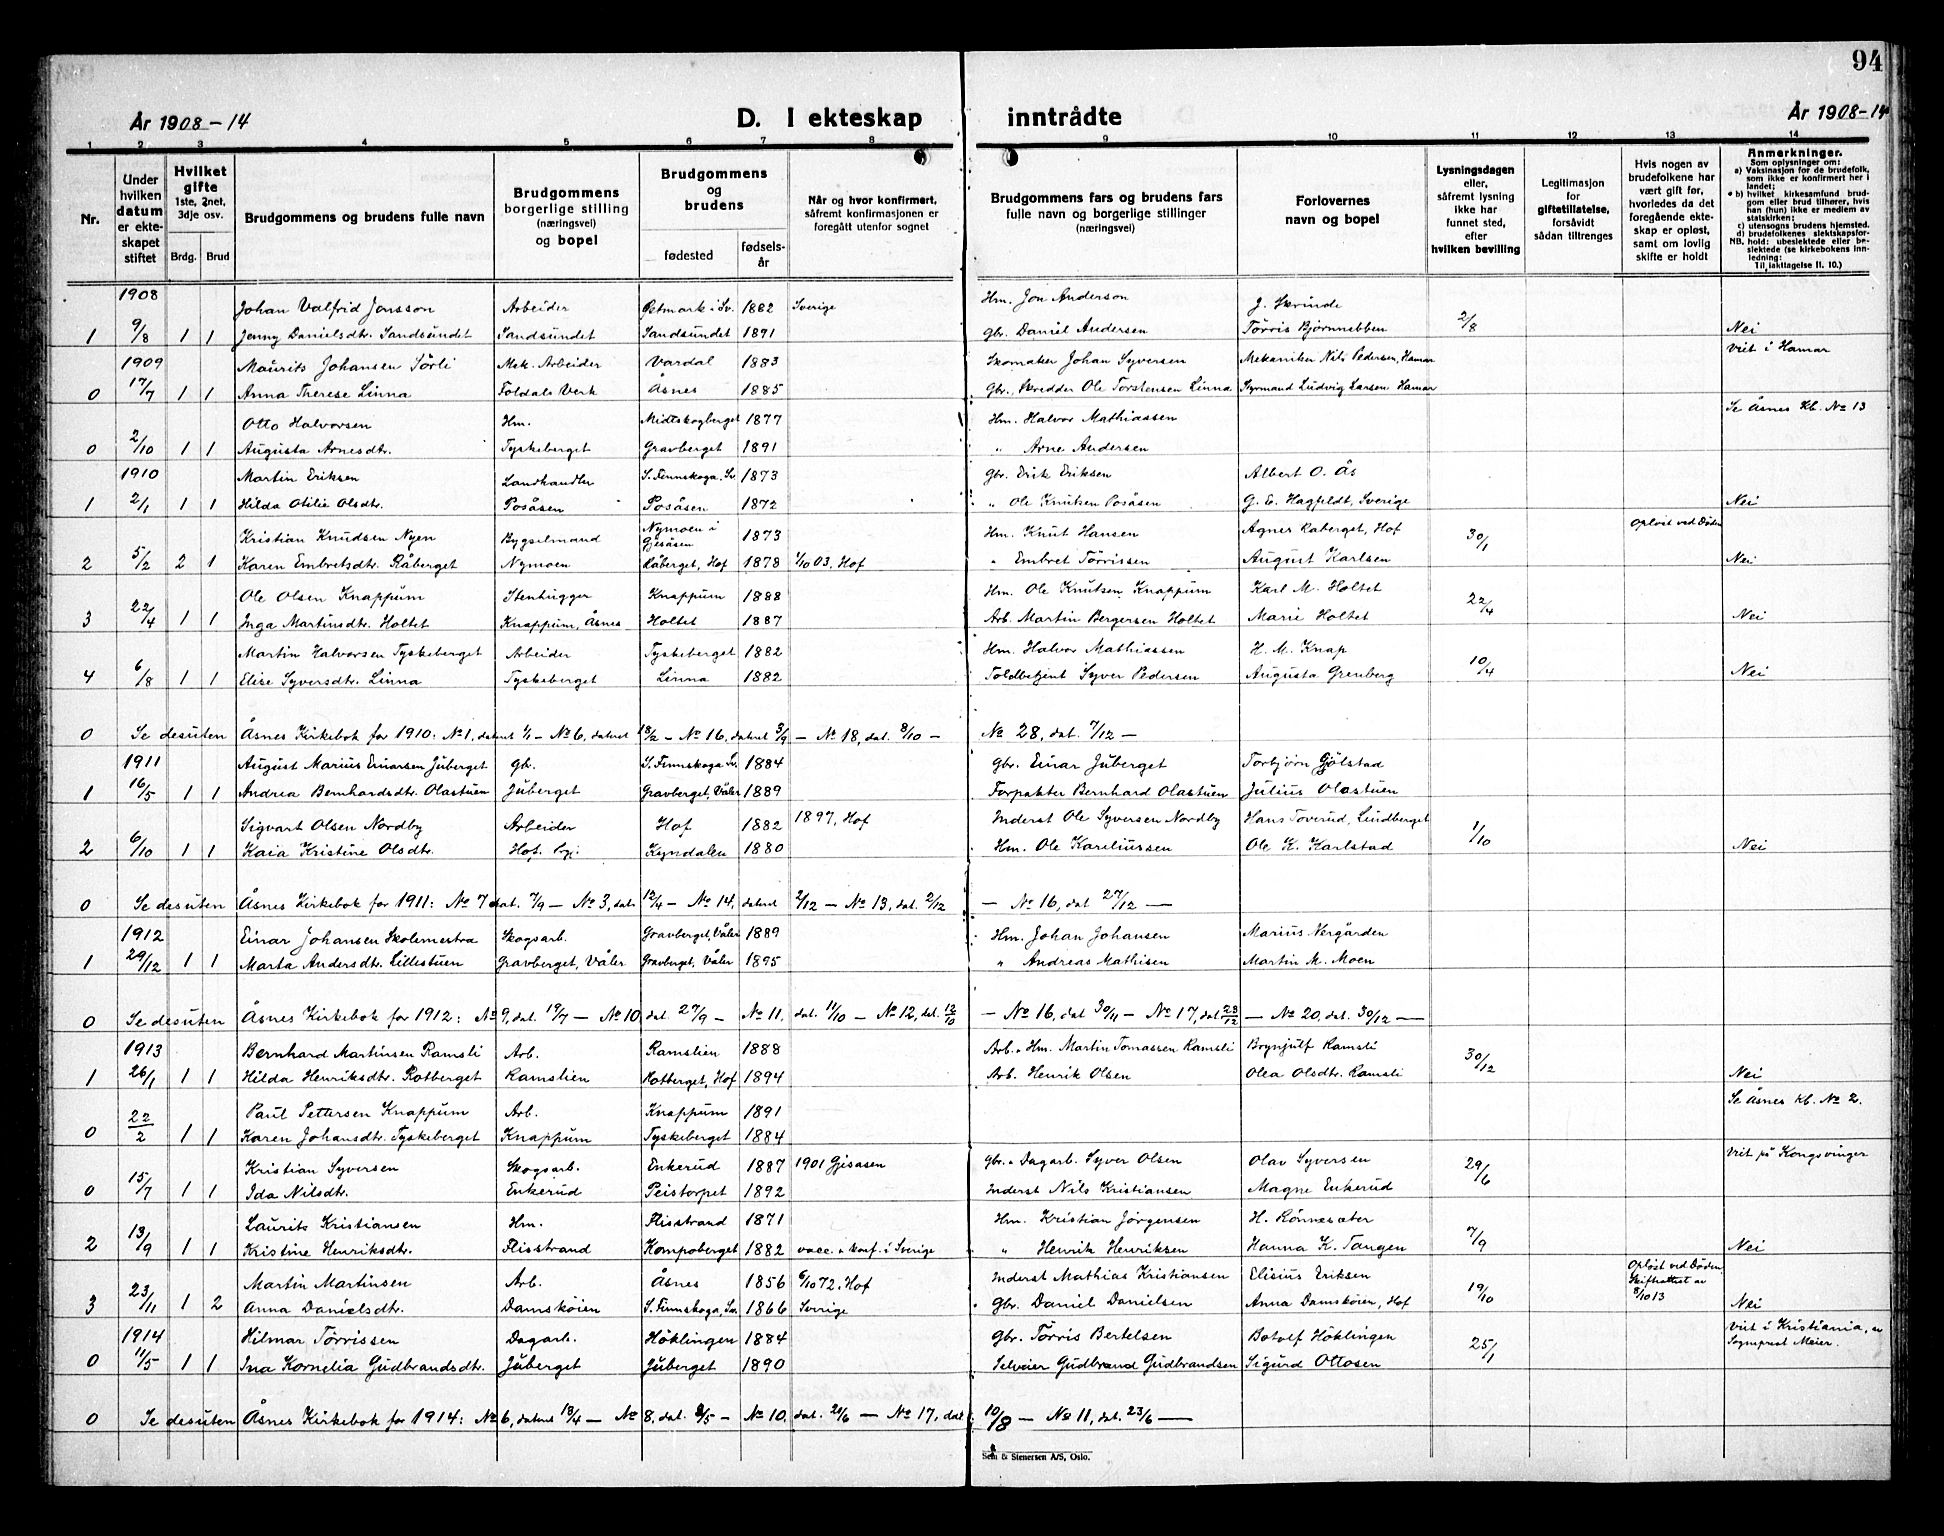 94
År 1908-14
D. I ekteskap inntrådte
År 1908-14
1 2 3 4 5 6 7 8 9 10 11 12 13 14
Nr.
Under hvilken datum er ekteskapet stiftet
Hvilket gifte 1ste, 2net, 3dje osv.
Brdg. Brud
Brudgommens og brudens fulle navn
Brudgommens borgerlige stilling (næringsvei) og bopel
Brudgommens og brudens
fødested
fødselsår
Når og hvor konfirmert, såfremt konfirmasjonen er foregått utenfor sognet
Brudgommens fars og brudens fars fulle navn og borgerlige stillinger (næringsvei)
Forlovernes navn og bopel
Lysningsdagen eller, såfremt lysning ikke har funnet sted, efter hvilken bevilling
Legitimasjon for giftetillatelse, forsåvidt sådan tiltrenges
Hvis nogen av brudefolkene har vært gift før, hvorledes da det foregående ekteskap er opløst, samt om lovlig skifte er holdt
Anmerkninger.
Som oplysninger om:
a) Vaksinasjon for de brudefolk, som ikke er konfirmert her i landet;
b) hvilket kirkesamfund brudgom eller brud tilhører, hvis han (hun) ikke er medlem av statskirken;
c) utensogns brudens hjemsted.
d) brudefolkenes slektskapsforhold: ubeslektede eller beslektede (se kirkebokens innledning:
NB. Til iakttagelse II. 10.)
1908 Johan Valfrid Jonsson Arbeider Petmark i Sv. 1882 Sverige Hm. Jon Anderson J. Skrinde
1 9/8 1 1 Jenny Danielsdtr. Sandsundet Sandsundet Sandsundet 1891 Gbr. Daniel Andersen Törris Björnnebben 2/8 Nei
1909 Maurits Johansen Sörli Mek. Arbeider Vardal 1883 Skomaker Johan Syversen Mekaniker Nils Pedersen, Hamar Viet i Hamar
0 17/7 1 1 Anna Therese Linna Foldals Verk Åsnes 1885 Gbr. Skredder Ole Torstensen Linna Styrmand Ludvig Larsen Hamar
Otto Halvorsen Hm. Midtskogberget 1877 Hm. Halvor Mathiassen Se Åsnes Kb. No 13
0 2/10 1 1 Augusta Arnesdtr. Tyskeberget Gravberget 1891 " Arne Andersen
1910 Martin Eriksen Landhandler S. Finnskoga, Sv. 1873 Gbr. Erik Eriksen Albert O. Ås
1 2/1 1 1 Hilda Otilie Olsdtr. Posåsen Posåsen 1872 " Ole Knutsen Posåsen G. E. Hagfeldt, Sverige Nei
Kristian Knudsen Nyen Bygselmand Nymoen i Gjesåsen 1873 Hm. Knut Hansen Agnes Raberget, Hof 30/1 Opløst ved Døden
2 5/2 2 1 Karen Embretsdtr. Råberget Nymoen Råberget, Hof 1878 1/10 03, Hof " Embret Törrissen August Karlsen Nei
Ole Olsen Knappum Stenhugger Knappum 1888 Hm. Ole Knutsen Knappum Karl M. Holtet
3 22/4 1 1 Inga Martinsdtr. Holtet Knappum, Åsnes Holtet 1887 Arb. Martin Bergersen Holtet Marie Holtet 22/4 Nei
Martin Halvorsen Tyskeberget Arbeider Tyskeberget 1882 Hm. Halvor Mathiassen H. M. Knap
4 6/8 1 1 Elise Syversdtr. Linna Tyskeberget Linna 1882 Toldbetjent Syver Pedersen Augusta Grenberg 10/4 Nei
0 Se desuten Åsnes Kirkebok for 1910: No 1, datert 1/1 - No 6, datert 13/2 - No 16, datert 3/9 - No 18, dat. 8/10 - No 28, dat. 7/12 -
1911 August Marius Einarsen Juberget Gb. S. Finnskoga Sv. 1884 Gbr. Einar Juberget Torbjörn Gjölstad
1 16/5 1 1 Andrea Bernhardsdtr. Olastuen Juberget Gravberget, Våler 1889 Forpakter Bernhard Olastuen Julius Olastuen
Sigvart Olsen Nordby Arbeider Hof 1882 1897, Hof Inderst Ole Syversen Nordby Hans Toverud, Lindberget
2 6/10 1 1 Kaia Kristine Olsdtr. Hof. Pgj. Kyndalen 1880 Hm. Ole Kareliussen Ole K. Karlstad 1/10 Nei
0 Se desuten Åsnes Kirkebok for 1911: No 7 dat. 7/9 - No 3, dat. 12/4 - No 14, datert 2/12 - No 13, dat. 2/12 - No 16, dat 27/12 -
1912 Einar Johansen Skolemestra Skogsarb. Gravberget, Våler 1889 Hm. Johan Johansen Marius Nergården
1 29/12 1 1 Marta Andersdtr. Lillestuen Gravberget, Våler Gravberget, Våler 1895 " Andreas Mathisen Martin M. Moen
0 Se desuten Åsnes Kirkebok for 1912: No 9, dat. 19/7 - No 10, dat 27/9 - No 11. dat. 11/10 - No 12, dat. 12/10 - No 16, dat 30/11 - No 17, dat 23/12 - No 20, dat. 30/12 -
1913 Bernhard Martinsen Ramsli Arb. Ramslien 1888 Arb. o Hm. Martin Tomassen Ramsli Brynjulf Ramsli
1 26/1 1 1 Hilda Henriksdtr. Rotberget Ramslien Rotberget, Hof 1894 Arb. Henrik Olsen Olea Olsdtr. Ramsli 30/12 Nei
Paul Pettersen Knappum Arb. Knappum 1891 Se Åsnes kb. No 2.
0 22/2 1 1 Karen Johansdtr. Tyskeberget Knappum Tyskeberget 1884
Kristian Syversen Skogsarb. Enkerud 1887 1901 Gjesasen Gbr. o Dagarb. Syver Olsen Olav Syversen Viet på Kongsvinger
0 15/7 1 1 Ida Nilsdtr. Enkerud Peistorpet 1892 Inderst Nils Kristiansen Magne Enkerud 29/6
Laurits Kristiansen Hm. Flisstrand 1871 Hm. Kristian Jörgensen H. Rönnesæter
2 13/9 1 1 Kristine Henriksdtr. Flisstrand Kompoberget 1882 vacc. o konf. i Sverige " Henrik Henriksen Hanna K. Tangen 7/9 Nei
Martin Martinsen Arb. Åsnes 1856 6/10 72. Hof Inderst Mathias Kristiansen Elisius Eriksen Opløst ved Døden. Skifteattest av 8/10 13
3 23/11 1 2 Anna Danielsdtr. Damskoien S. Finnskoga, Sv. 1866 Sverige Gbr. Daniel Danielsen Anna Damskoien, Hof 19/10 Nei
1914 Hilmar Törrissen Dagarb. Höklingen 1884 Gbr. Törris Bertelsen Botolf Höklingen Viet i Kristiania, av Sogneprest Meier.
0 11/5 1 1 Ina Kornelia Gudbrandsdtr. Juberget Juberget 1890 Selveier Gudbrand Gudbrandsen Sigurd Ottosen 25/1
0 Se desuten Åsnes Kirkebok for 1914: No 6, datert 13/4 - No 8, dat. 2/5 - No 10. dat. 21/6 - No 17, dat. 10/8 - No 11, dat. 23/6 -
Sem & Stenersen A/S, Oslo.